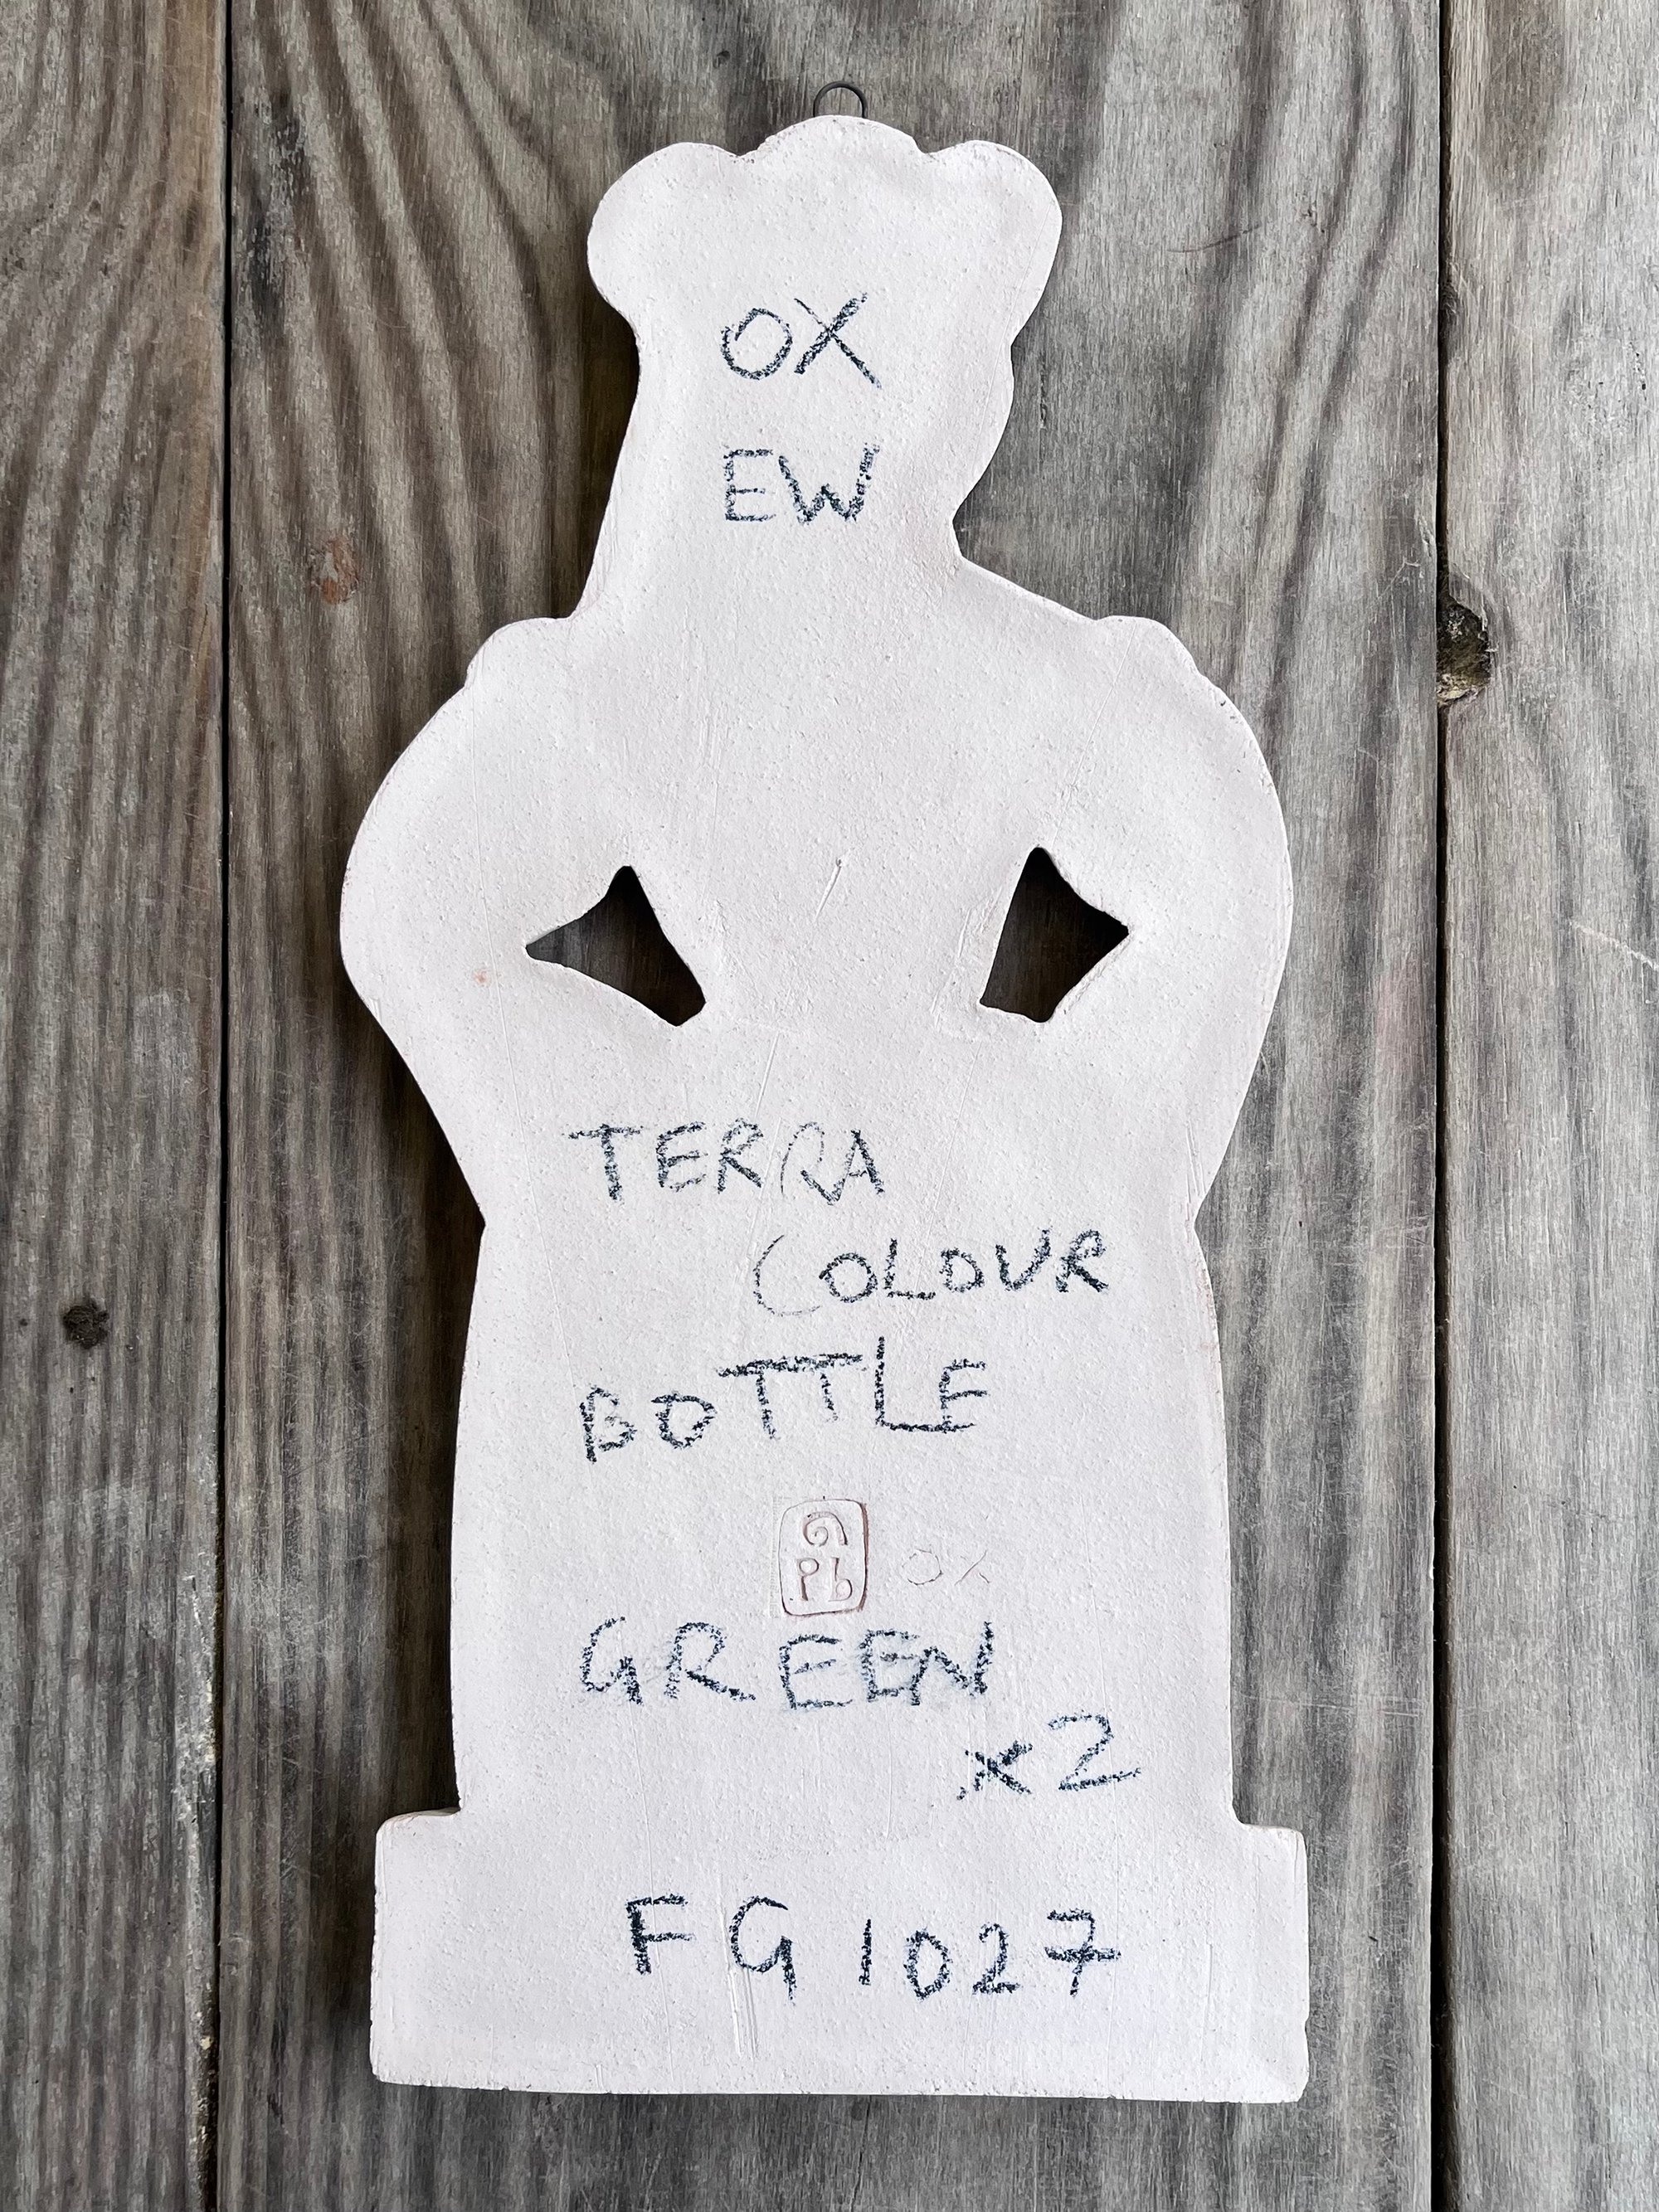 OX
EW
TERRA
COLOUR
BOTTLE
Pb OX
GREEN
x2
FG1027